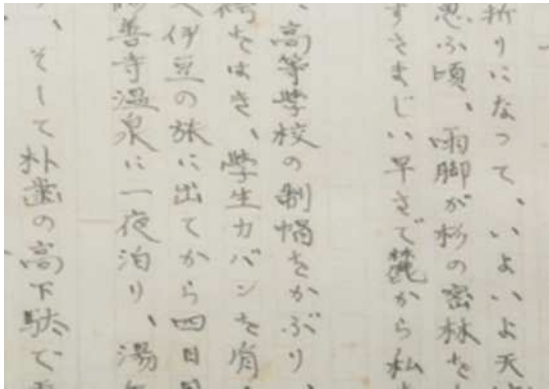 折りになって、いよいよ天
思ふ頃、雨脚が杉の密林を
すさまじい早さで麓から私
、高等學校の制帽をかぶり、
袴をはき、學生カバンを肩
人伊豆の旅に出てから四日目
善寺温泉に一夜泊り、湯
、そして朴歯の高下駄で